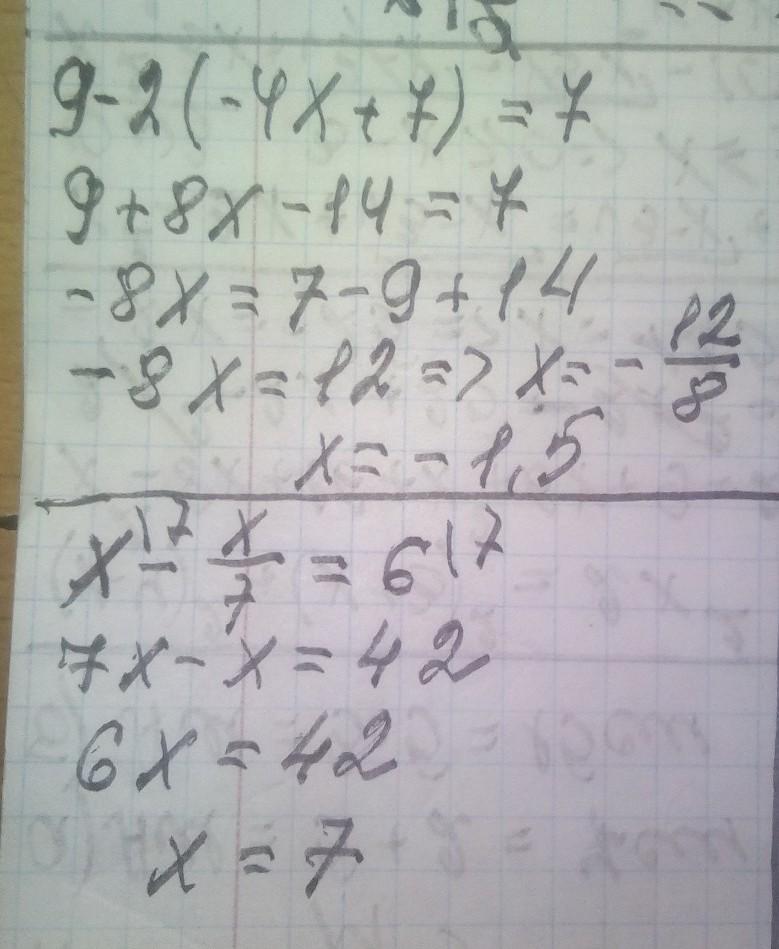 9-2(-4x+7)=7
9+8x-14=7
-8x=7-9+14
-8x=12=>x=-12/8
x=-1,5
x\7 - x/7 = 6\7
7x-x=42
6x=42
x=7